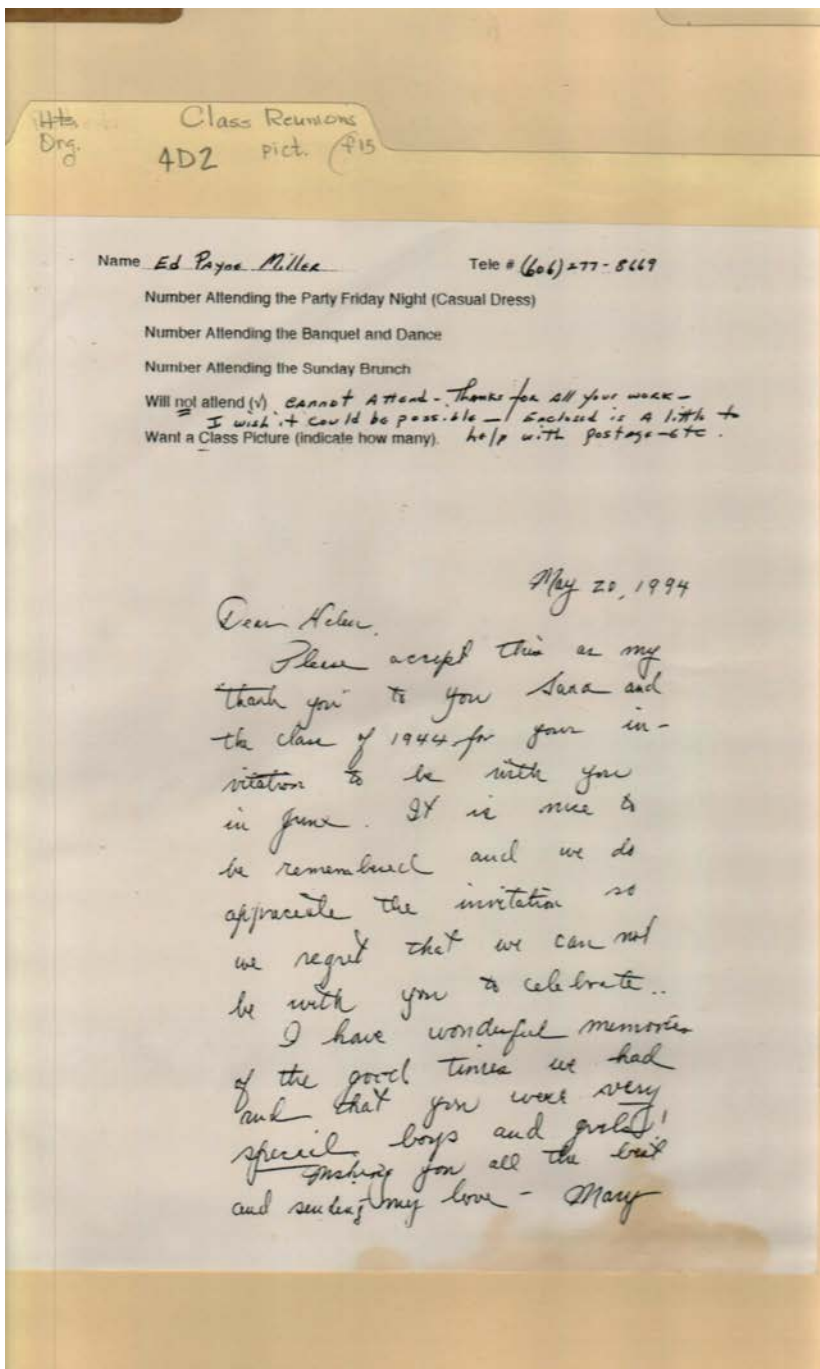 Hts. Class Reunions
Org. 4D2 pict. P15
Name Ed Payne Miller Tele # (606) 277-8669
Number Attending the Party Friday Night (Casual Dress)
Number Attending the Banquet and Dance
Number Attending the Sunday Brunch
Will not attend (√) CANNOT Attend - Thanks for All your work -
I wish it could be possible - Enclosed is A little to
Want a Class Picture (indicate how many). help with postage - etc.
May 20, 1994
Dear Helen,
Please accept this as my
"thank you" to you Sara and
the class of 1944 for your in-
vitation to be with you
in June. It is nice to
be remembered and we do
appreciate the invitation so
we regret that we can not
be with you to celebrate..
I have wonderful memories
of the good times we had
and that you were very
special boys and girls!
Wishing you all the best
and sending my love - Mary